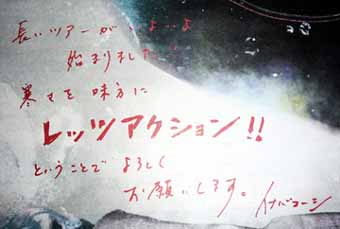 長いツアーがいよいよ
始まりました
寒さを味方に
レッツアクション!!
ということでよろしく
お願いします。イナバコーシ